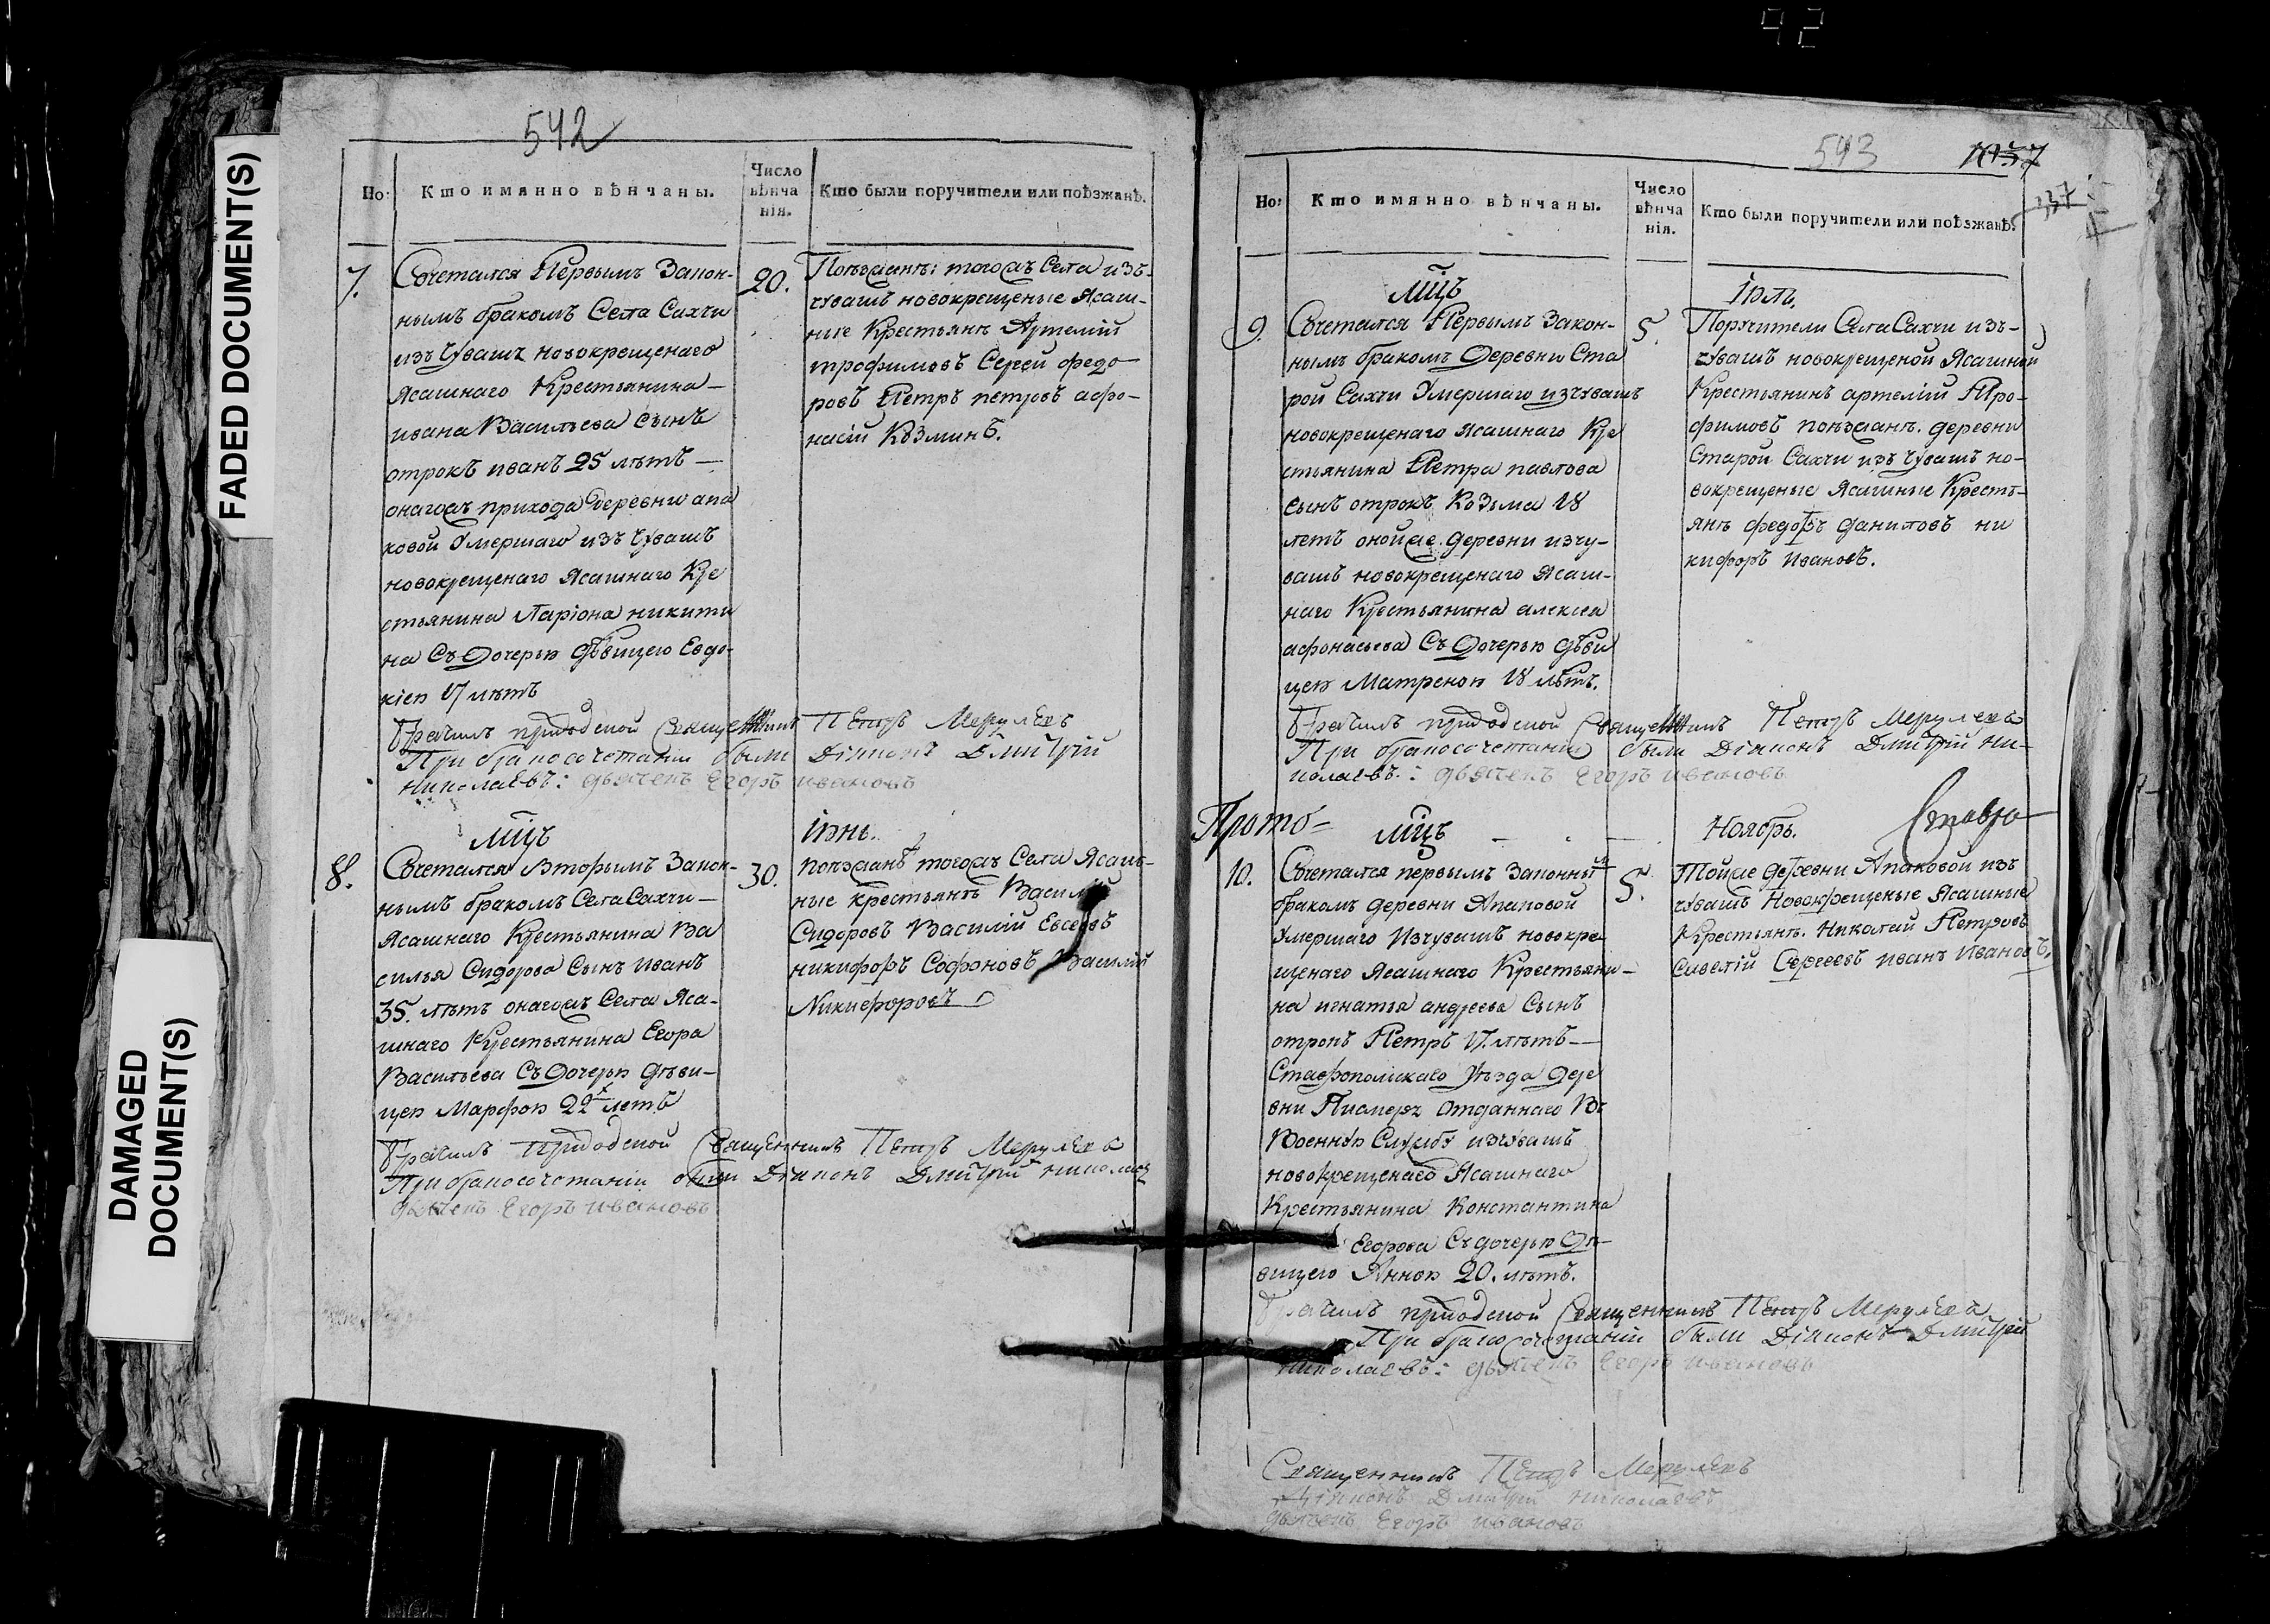 92
FADED DOCUMENT(S)
DAMAGED
DOCUMENT(S)
542
Но:
Кто имянно вѣнчаны.
Число
вѣнча
нія.
Кто были поручители или поѣзжанѣ.
7.
Сочетался Первымъ Закон-
нымъ бракомъ Села Сахчи
изъ Чувашъ новокрещенаго
Ясашнаго Крестьянина
ивана Васильева сынъ
отрокъ иванъ 25 лѣтъ
онагожъ прихода деревни апа
ковой Умершаго изъ Чувашъ
новокрещенаго Ясашнаго Кре
стьянина Ларіона никити
на Съ Дочерью дѣвицею Евдо-
кіею 17 лѣтъ
20.
Поѣзжанѣ: тогожъ Села изъ
чувашъ новокрещеные Ясаш-
ные Крестьянѣ Артемій
трофимовъ Сергей федо
ровъ Петръ петровъ афо-
насій Козминъ.
Бра чилъ приходской Священникъ Петръ Мерулевъ
При бракосочетаніи были Діаконъ Дмитрій
николаевъ: дьячекъ Егоръ ивановъ
мцъ
Іюнь.
8.
Сочетался Вторымъ Закон-
нымъ бракомъ Села Сахчи
Ясашнаго Крестьянина Ва
силья Сидорова Сынъ Иванъ
35. лѣтъ онагожъ Села Яса-
шнаго Крестьянина Егора
Васильева Съ Дочерью дѣви-
цею Марфою 22х летъ
30.
поѣзжанѣ тогожъ Села Ясаш-
ные крестьянѣ Василій
Сидоровъ Василій Евсеевъ
никифоръ Софоновъ Василій
Никифоровъ
приходской Священникъ Петръ Мерулевъ
При бракосочетаніи были Діаконъ Дмитрій николаевъ
дьячекъ Егоръ ивановъ
543
1037
337
Но:
Кто имянно вѣнчаны.
Число
вѣнча
нія.
Кто были поручители или поѣзжанѣ.
мцъ
Іюль.
9.
Сочетался Первымъ Закон-
нымъ бракомъ Деревни Ста
рой Сахчи Умершаго изчувашъ
новокрещенаго Ясашнаго Кре
стьянина Петра павлова
сынъ отрокъ Козьма 18
летъ онойже деревни изчу-
вашъ новокрещенаго Ясаш-
наго Крестьянина алексея
афонасьева Съ Дочерью дѣви
цею Матреною 18 лѣтъ.
5.
Поручители Села Сахчи изъ-
чувашъ новокрещеной Ясашной
Крестьянинъ артемій Тро-
фимовъ поѣзжанѣ. деревни
Старой Сахчи изъ Чувашъ но-
вокрещеные Ясашные Кресть-
янѣ федоръ даниловъ ни
кифоръ Ивановъ.
приходской Священникъ Петръ Мерулевъ
При бракосочетаніи были Діаконъ Дмитрій ни-
колаевъ: дьячекъ Егоръ ивановъ
Прото=
мцъ
Ноябрь.
10.
Сочетался первымъ Законный
бракомъ деревни Апаковой
Умершаго Изчувашъ новокре
щенаго Ясашнаго Крестьяни-
на игнатья андреева Сынъ
отрокъ Петръ 17. лѣтъ
Ставропольскаго Уѣзда Дере
вни Отданнаго Въ
Военную Службу изчувашъ
новокрещенаго Ясашнаго
Крестьянина Константина
Егорова Съ дочерью Дѣ-
вицею Анною 20. лѣтъ.
5.
Тойже деревни Апаковой изъ
чувашъ Новокрещеные Ясашные
Крестьянѣ. Николай Петровъ
Савелій Сергеевъ иванъ Ивановъ.
приходской Священникъ Петръ Мерулевъ
При бракосочетаніи были Діаконъ Дмитрій
николаевъ: дьячекъ Егоръ ивановъ
Священникъ Петръ Мерулевъ
Діаконъ Дмитрій николаевъ
дьячекъ Егоръ ивановъ